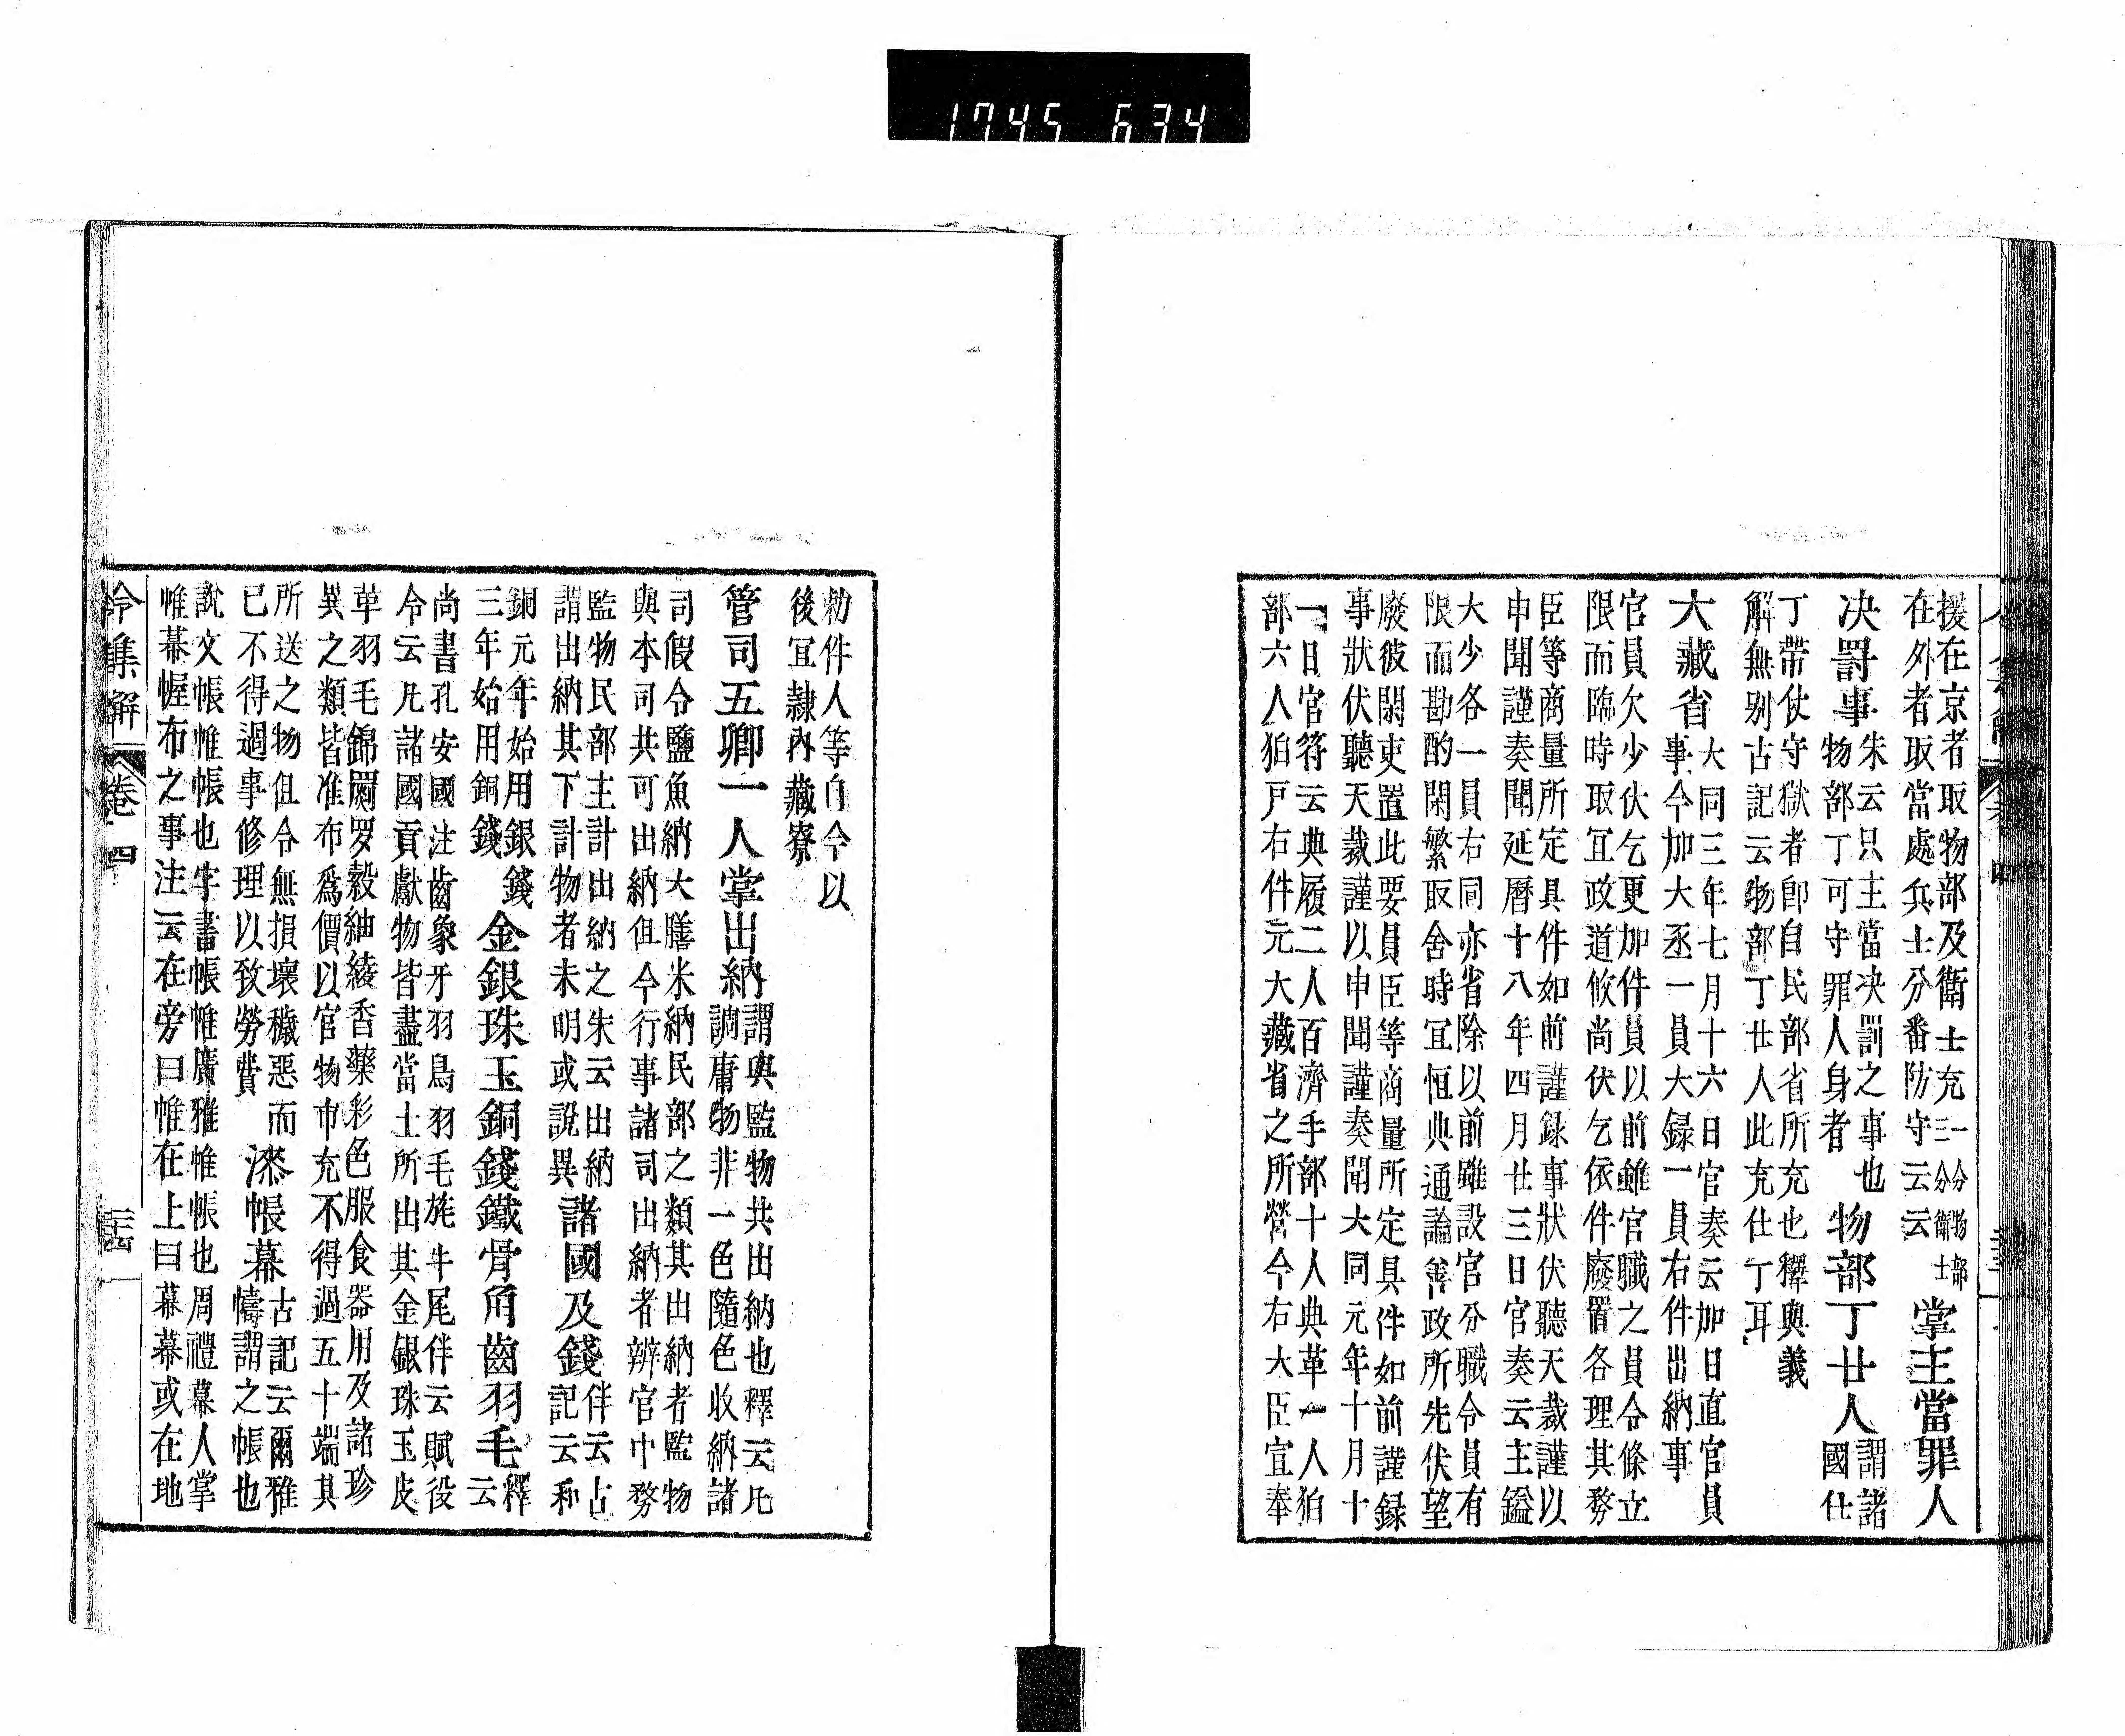 1745 634
援在京者取物部及衛士充三一分分物衛部士
在外者取當處兵士分番防守云云
掌主當罪人
决罸事
朱云只主當决罰之事也
物部丁可守罪人身者
物部丁廿人
謂諸
國仕
丁帶仗守獄者卽自民部省所充也釋與義
解無别古記云物部丁廿人此充仕丁耳
大藏省
大同三年七月十六日官奏云加日直官員
事今加大丞一員大録一員右件出納事
官員欠少伏乞更加件員以前雖官職之員令條立
限而臨時取宜政道攸尚伏乞依件廢置各理其務
臣等商量所定具件如前謹録事狀伏聽天裁謹以
申聞謹奏聞延暦十八年四月廿三日官奏云主鎰
大少各一員右同亦省除以前雖設官分職令員有
限而勘酌閑繁取舍時宜恒典通論善政所先伏望
廢彼閑吏置此要員臣等商量所定具件如前謹録
事狀伏聽天裁謹以申聞謹奏聞大同元年十月十
一日官符云典履二人百濟手部十人典革一人狛
部六人狛戸右件元大藏省之所營今右大臣宣奉
勑件人等自今以
後宜隷內藏寮
管司五卿一人掌出納
謂與監物共出納也釋云凡
調庸物非一色隨色收納諸
司假令鹽魚納大膳米納民部之類其出納者監物
與本司共可出納但今行事諸司出納者辨官中務
監物民部主計出納之朱云出納
謂出納其下計物者未明或說異
諸國及錢
伴云古
記云和
銅元年始用銀錢
三年始用銅錢
金銀珠玉銅錢鐵骨角齒羽毛
釋
云
尚書孔安國注齒象牙羽鳥羽毛旄牛尾伴云賦役
令云凡諸國貢獻物皆盡當土所出其金銀珠玉皮
革羽毛錦罽罗縠紬綾香藥彩色服食器用及諸珍
異之類皆准布爲價以官物市充不得過五十端其
所送之物但令無損壞穢惡而
已不得過事修理以致勞費
漆帳幕
古記云爾雅
幬謂之帳也
說文帳帷帳也字書帳帷廣雅帷帳也周禮幕人掌
帷幕幄布之事注云在旁曰帷在上曰幕幕或在地
令集解
卷四
三十四